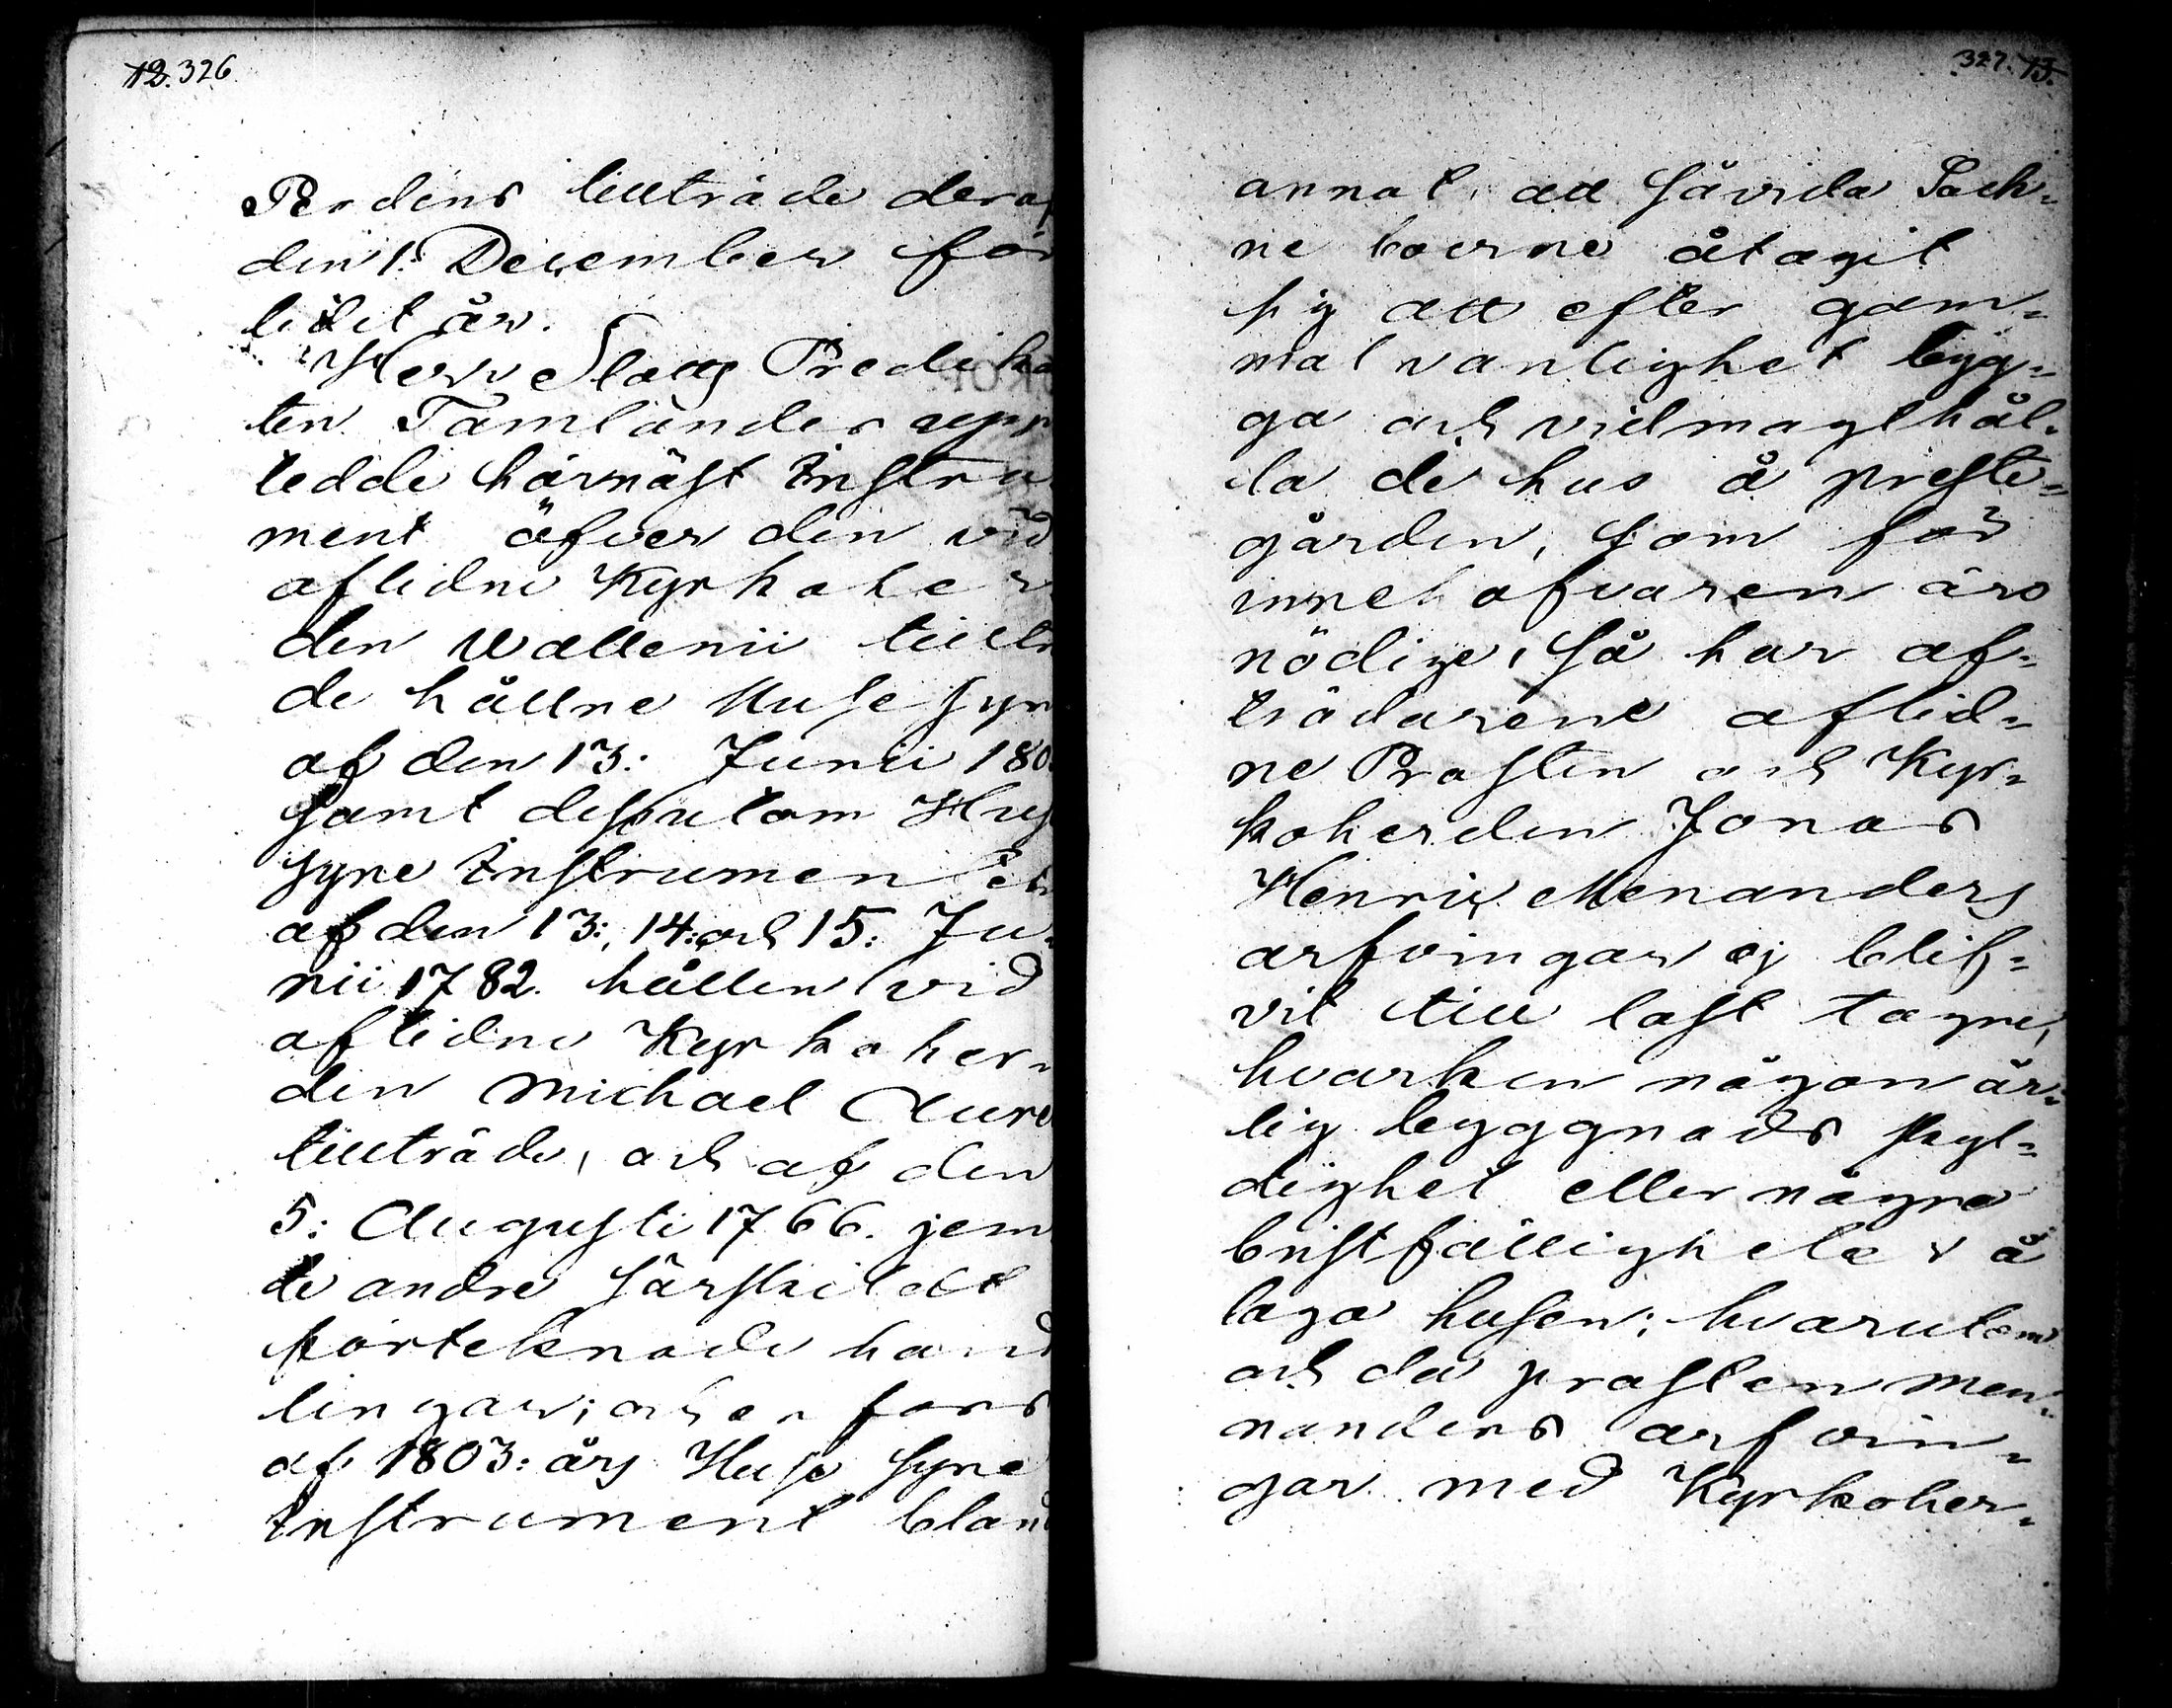 12. 326
Perdens tillträde deraf
den 1. December för
lidit år.
Herr Slotts Predika
ten Tamlander upp
tedde härnäst Instru
ment öfver den vid
aflidne Kyrkoher
den Wallenii tilltr
de hållne Husesyn
af den 13: Junii 180
samt dessutom Hus
syne Instrumenter
af den 13:, 14: och 15: Ju-
nii 1782. hållen vid
aflidne Kyrkoher-
den Michael Aure
tillträde, och af den
5: Augusti 1766. jem
te andre särskildt
förteknade hand
lingar; och er fors
af 1803: års Huse Syne
Instrument bland
327. 13.
annat, att såvida Sock-
ne boerne åtagit
sig att efter gam-
mal vanlighet byg-
ga och vidmagthål-
la de hus å preste-
gården, som för
innehafvaren äro
nödige, så har af-
trädarene aflid-
ne Prosten och Kyr-
koherden Jonas
Henric Menanders
arfvingar ej blif-
vit till last tagne,
hvarken någon år-
lig byggnads skyl-
dighet eller några
bristfälligheter å
laga husen; hvarutom
och då prosten Men-
nanders arfvin-
gar med Kyrkoher-